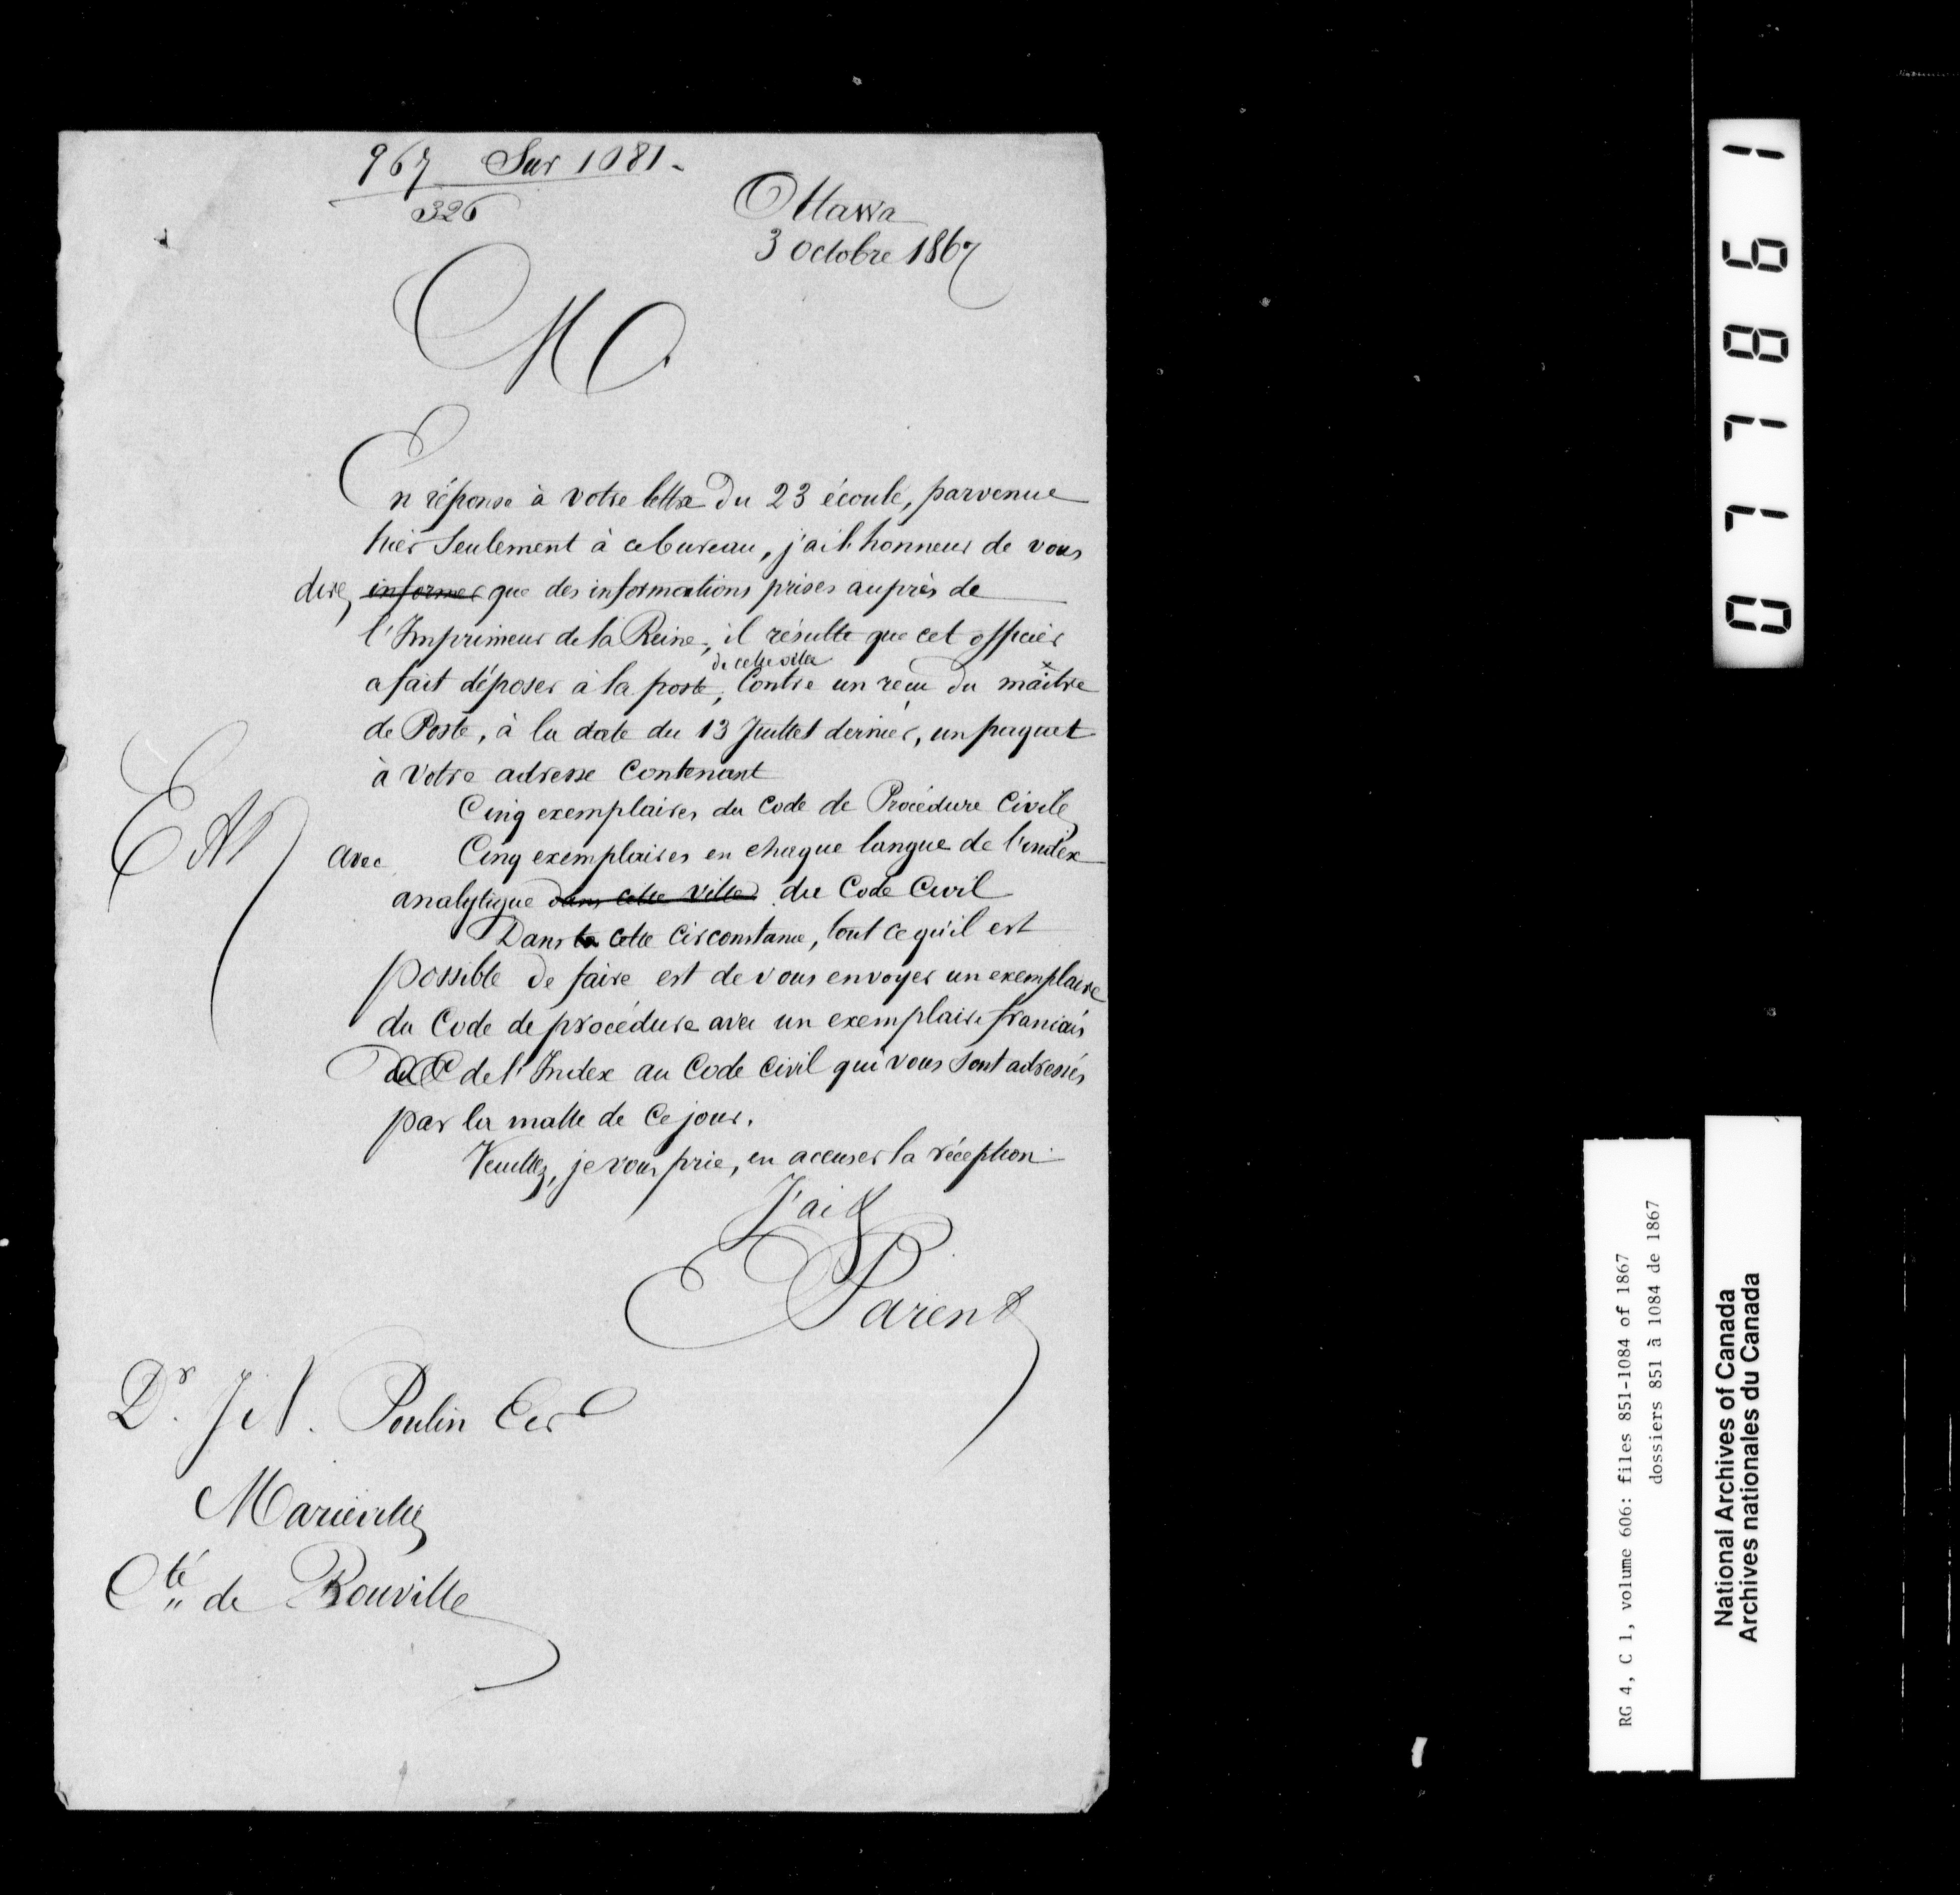 967 Sur 1081 -
326
Ottawa
3 Octobre 1867
M
En réponse à votre lettre du 23 écoulé, parvenue
hier Seulement à ce bureau, j'ai l'honneur de vous
dire, informer que des informations prises auprès de
l'Imprimeur de la Reine, il résulte que cet officier
de cette ville
a fait déposer à la poste, Contre un reçu du maître
de Poste, à la date du 13 Juillet dernier, un paquet
à votre adresse Contenant
Cinq exemplaires du Code de Procédure Civile
avec Cinq exemplaires en chaque langue de l'index
analytique dans cette ville du Code Civil
Dans la cette Circonstance, tout ce qu'il est
possible de faire est de vous envoyer un exemplaire
du Code de procédure avec un exemplaire français
de l'Index au Code Civil qui vous sont adressés
par la malle de Ce jour.
Veuillez, je vous prie, en accuser la réception
J'ai &
E Parent
EAP
Dr. J N. Poulin Ecr
Marieville
Cté de Rouville
077861
RG 4, C 1, volume 606: files 851-1084 of 1867
dossiers 851 à 1084 de 1867
National Archives of Canada
Archives nationales du Canada